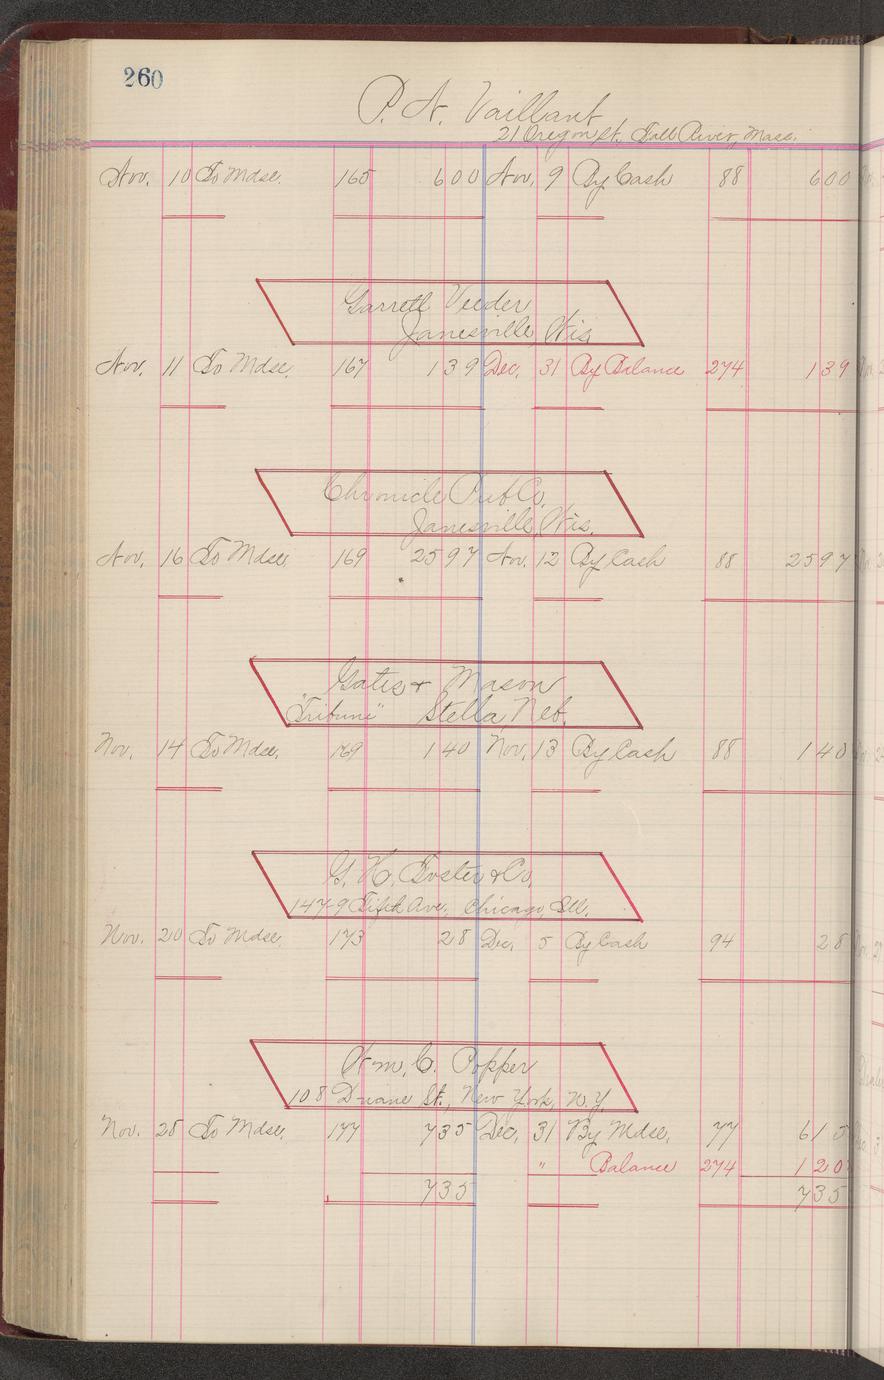 260
P. N. Vaillant
21 Oregon St. Fall River, Mass.
Nov. 10 To Mdse. 165 600 Nov. 9 By Cash 88 600
Garrett Veeder
Janesville, Wis.
Nov. 11 To Mdse. 167 139 Dec. 31 By Balance 274 139
Chronicle Pub Co.
Janesville, Wis.
Nov. 16 To Mdse. 169 2597 Nov. 12 By Cash 88 2597
Gates & Mason
"Tribune" Stella Neb.
Nov. 14 To Mdse. 169 140 Nov. 13 By Cash 88 140
G. H. Foster & Co.
147-9 Fifth Ave. Chicago, Ill.
Nov. 20 To Mdse. 173 28 Dec. 5 By Cash 94 28
Wm. C. Popper
108 Duane St., New York, N.Y.
Nov. 28 To Mdse. 177 735 Dec. 31 By Mdse. 77 615
" Balance 274 120
735 735